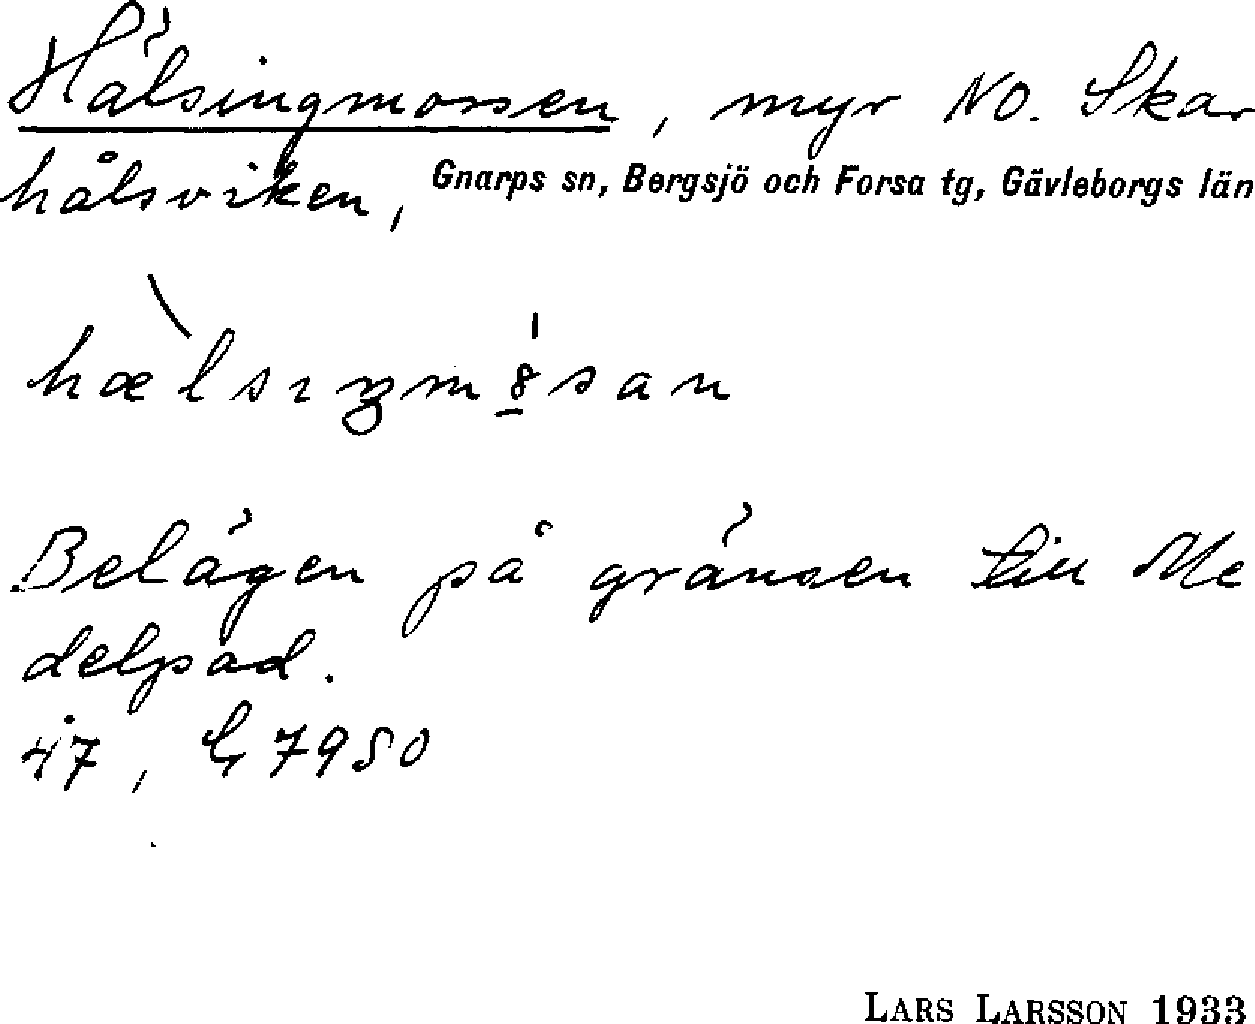 Hälsingmossen, myr NO. Skar
hålsviken, Gnarps sn, Bergsjö och Forsa tg, Gävleborgs län
Belägen på gränsen till Me
delpad.
47, G 7950
LARS LARSSON 1933